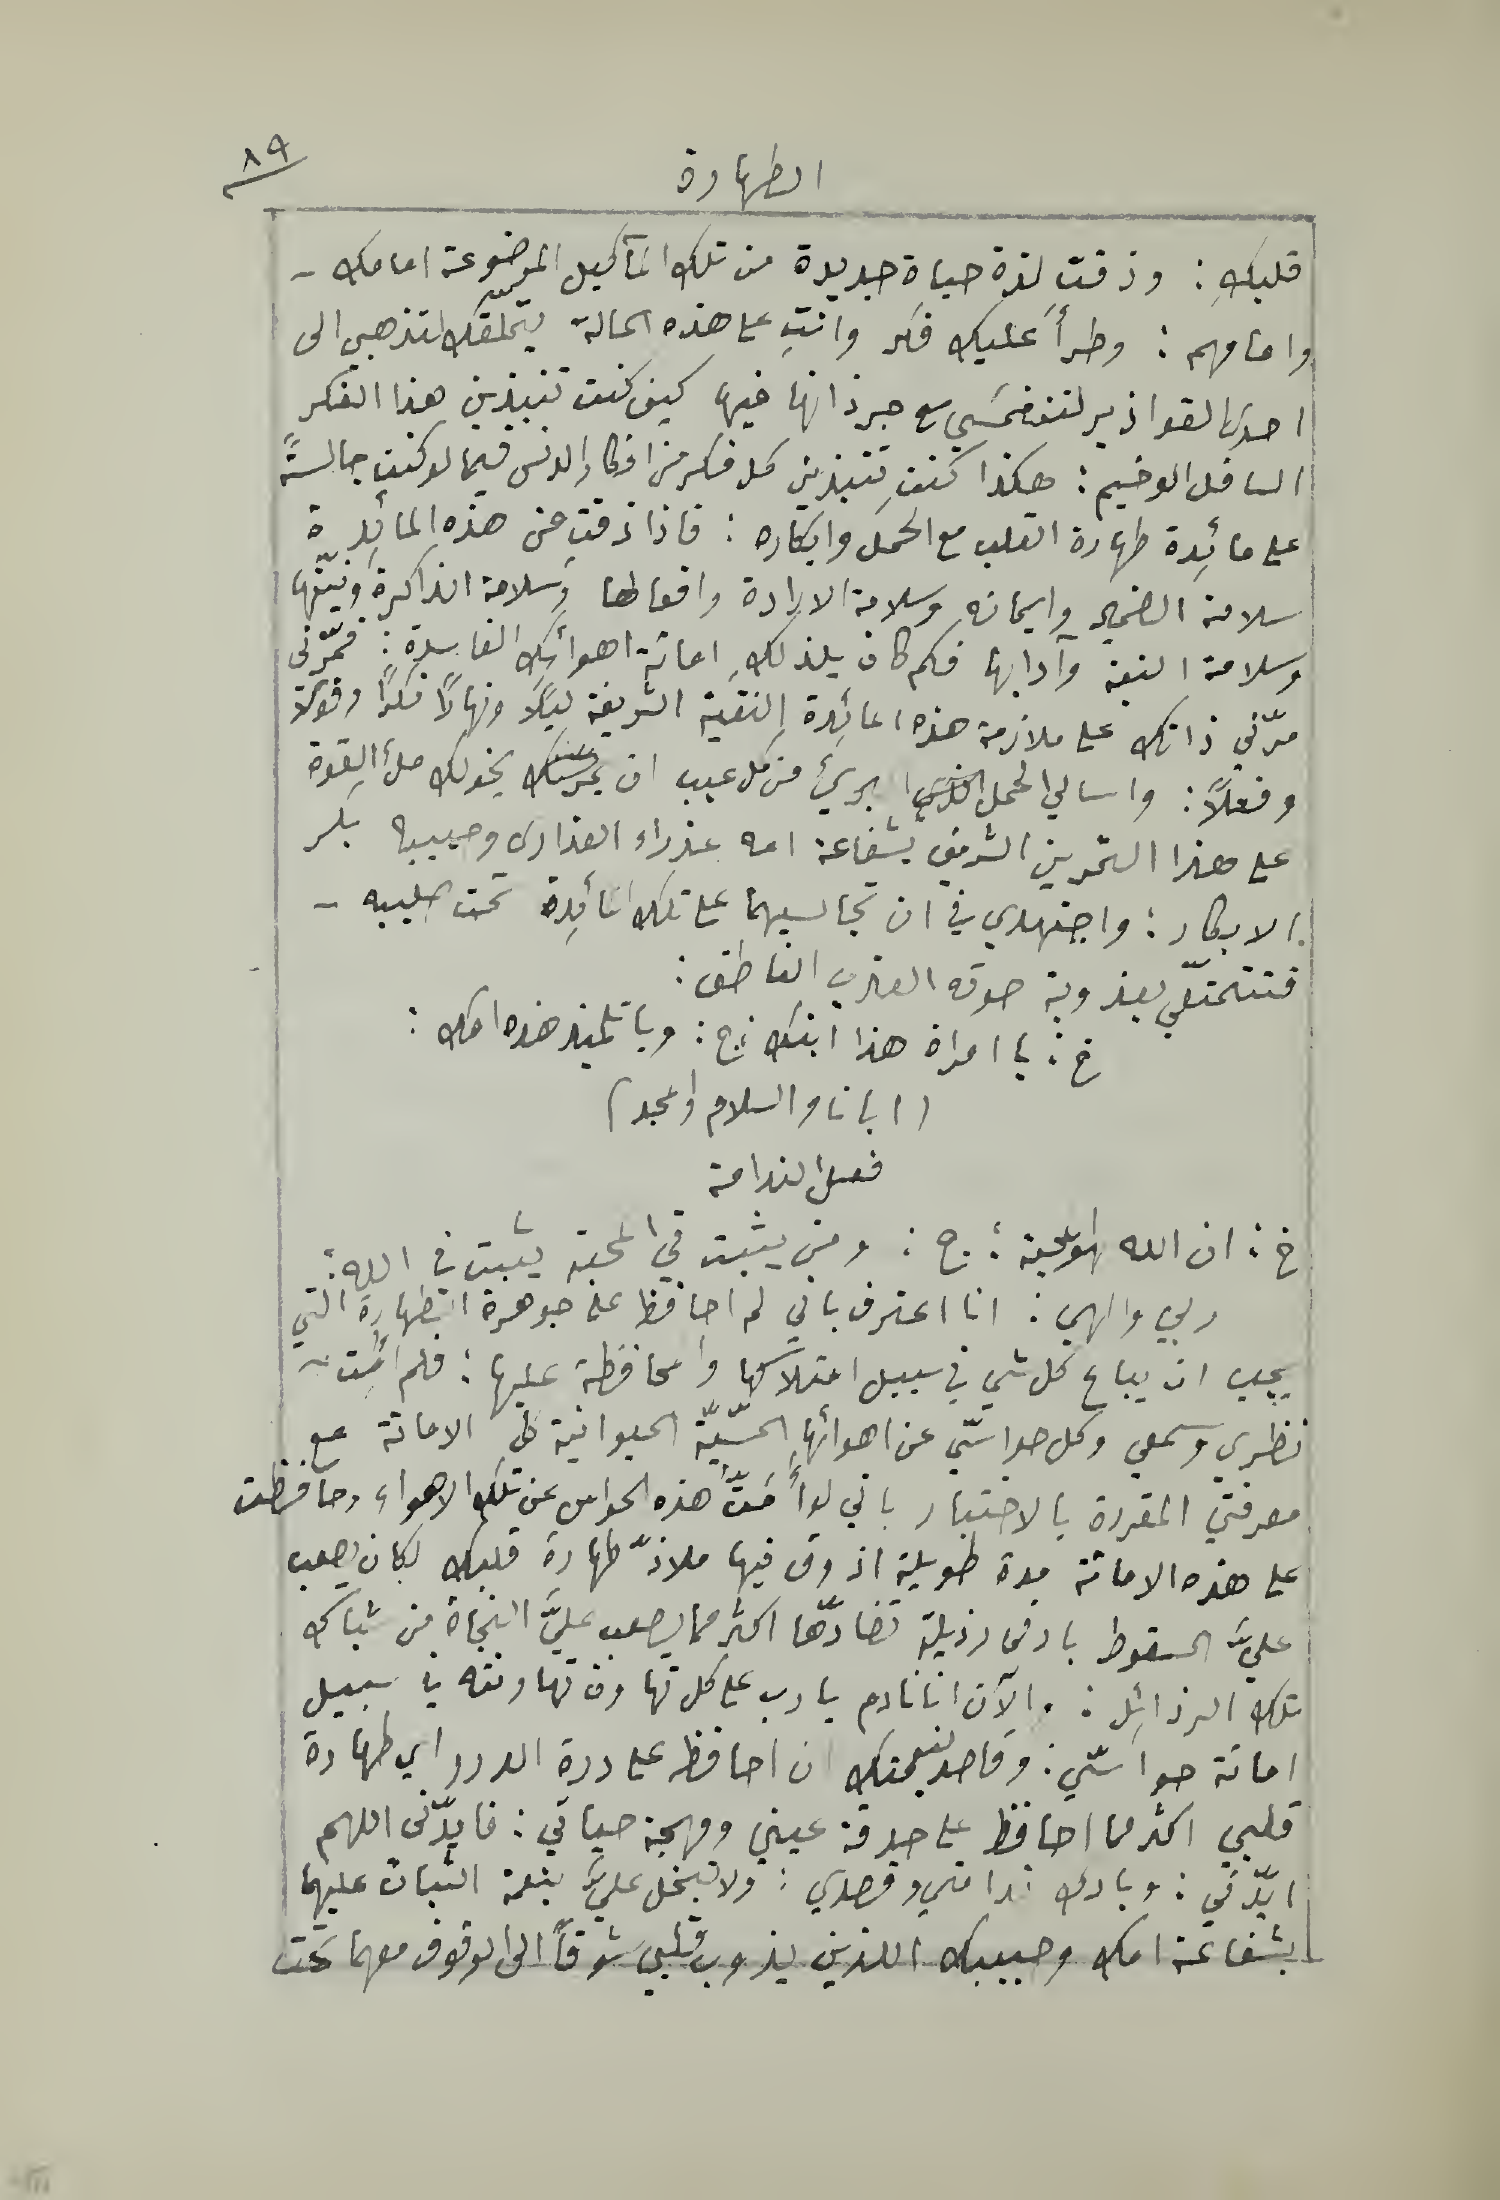 ٨٩
الطهارة
قلبكِ : وذقتِ لذة حياة جديدة من تلك المآكيل الموضوعة امامك -
وامامهم : وطرأ عليك فكر وانتِ على هذه الحالة لتذهبي الى
احدى القواذير لتنغمسي مع جرذانها فيها كيف كنت تنبذين هذا الفكر
السافل الوخيم : هكذا كنتِ تنبذين كل فكر من افكار الدنس فيما لو كنت جالسةً
على مائدة طهارة القلب مع الحمل وابكاره : فاذا ذقتِ من هذه المائدة
سلامة الضمير وايمانه وسلامة الارادة وافعالها وسلامة الذاكرة ونيتها
وسلامة النية وآدابها فكم كان يلذ لكِ اماتة اهوائكِ الفاسدة : فمرّني
مرّني ذاتك على ملازمة هذه المائدة النقية الشريفة ليلاً ونهاراً فكرًا وقولاً
وفعلاً : واسالي الحمل البريء من كل عيب ان يخولك ملأ القوة
على هذا التمرين الشريف بشفاعة امه عذراء العذارى وحبيبه بكر
الابكار : واجتهدي في ان تجالسيهما على تلك المائدة تحت صليبه -
فتتمتعي بعذوبة صوته العذب الناطق :
خ : يا امراة هذا ابنك : ج : ويا تلميذ هذه امك :
( ابانا والسلام والمجد )
فعل الندامة
خ : ان الله لهو محبة : ج : ومن يثبت في المحبة يثبت في الله :
ربي والهي : انا اعترف باني لم احافظ على جوهرة الطهارة التي
يجب ان يباع كل شي في سبيل امتلاكها والمحافظة عليها : فلم اُمِت -
نظري وسمعي وكل حواسّي عن اهوائها الحسّيّة الحيوانية كل الاماتة مع
معرفتي المقررة بالاختبار باني لو أمَتُّ هذه الحواس عن تلك الاهواء وحافظت
على هذه الاماتة مدة طويلة اذوق فيها ملاذّ طهارة قلبك لكان يصعب
عليَّ السقوط بادنى رذيلة تضادّها اكثر مما يصعب عليَّ النجاة من شباك
تلك الرذائل : والآن انا نادم يا رب على كل تهاون تهاونته في سبيل
اماتة حواسّي : وقاصد بنعمتك ان احافظ على درة الدرر اي طهارة
قلبي اكثر مما احافظ على حدقة عيني ومهجة حياتي : فايدّني اللهم
ايدّني : وبارك ندامتي وقصدي : ولا تبخل عليَّ بنعمة الثبات عليهما
بشفاعة امك وحبيبك اللذين يذوب قلبي شوقاً الى الوقوف معهما تحت